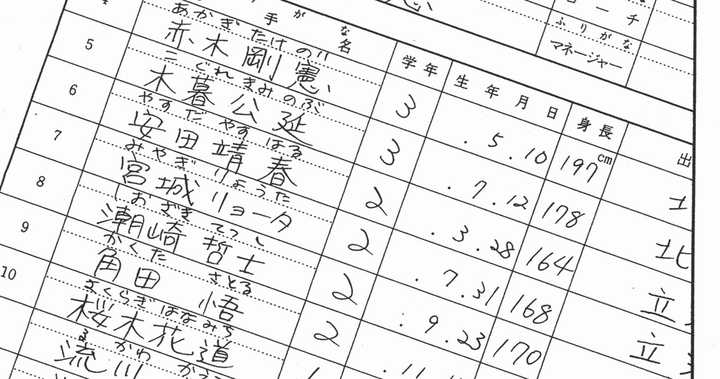 コーチ
ふりがな
マネージャー
手 が な
名
学年 生年月日 身長
cm
4
あかぎ たけのり
赤木剛憲
3 .5.10 197
5
こぐれ きみのぶ
木暮公延
3 .7.12 178
6
やすだ やすはる
安田靖春
2 .3.28 164
北
7
みやぎ りょうた
宮城リョータ
2 .7.31 168
立
8
しおざき てつし
潮崎哲士
2 .9.23 170
立
9
かくた さとる
角田 悟
2
10
さくらぎ はなみち
桜木花道
るかわ
流川